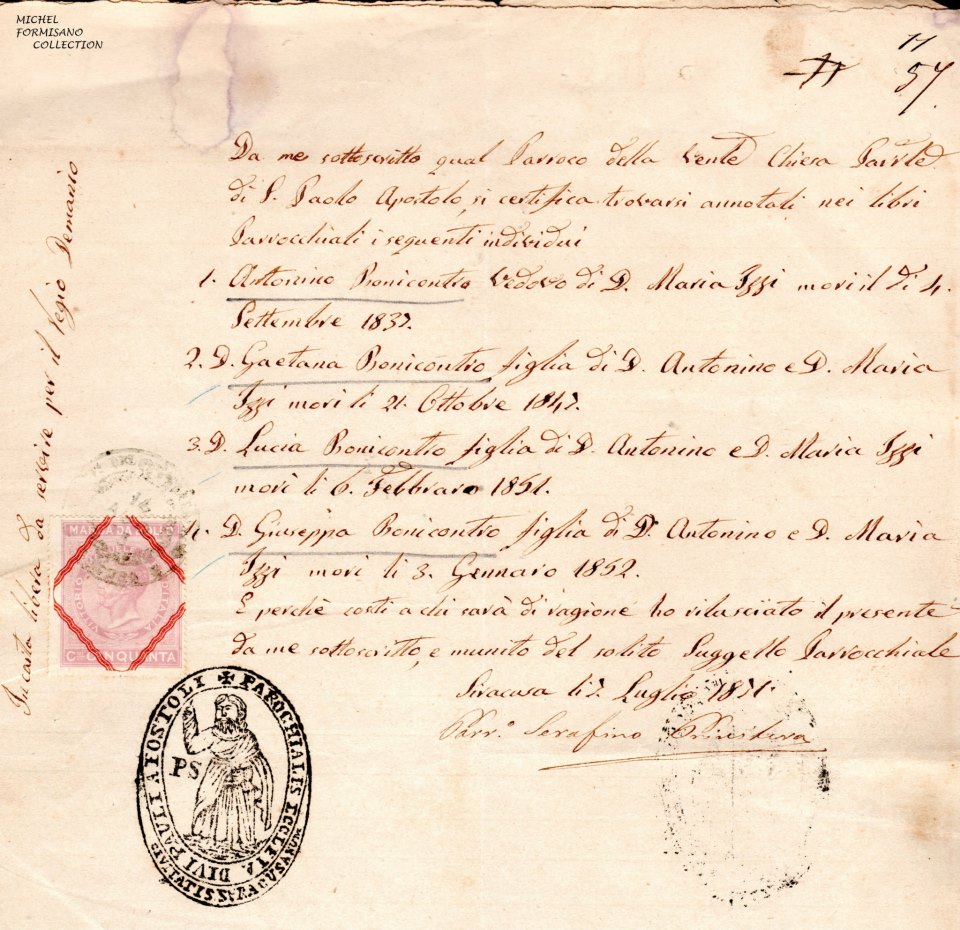 MICHEL
FORMISANO
COLLECTION
11
57.
Da me sottoscritto qual Parroco della Vente Chiesa Parrle
di S. Paolo Apostolo, si certifica trovarsi annotati nei libri
Parrocchiali i seguenti individui
1. Antonino Bonicontro vedovo di D. Maria Izzi morì il di 4.
Settembre 1837.
2. D. Gaetana Bonicontro figlia di D. Antonino e D. Maria
Izzi morì li 21. Ottobre 1847.
3. D. Lucia Bonicontro figlia di D. Antonino e D. Maria Izzi
morì li 6. Febbraro 1851.
4. D. Giuseppa Bonicontro figlia di Dn Antonino e D. Maria
Izzi morì li 3. Gennaro 1852.
E perchè costi a chi sarà di ragione ho rilasciato il presente
da me sottoscritto, e munito del solito Suggello Parrocchiale
Siracusa li 7. Luglio 1871.
Parr.o Serafino
In carta libera da servire per il Regio Demanio
MARCA DA BOLLO
VITTORIO D'ITALIA
CMI CINQUANTA
✠ PAROCHIALIS ECCLEIA DIVI PAULI APOSTOLI
PS